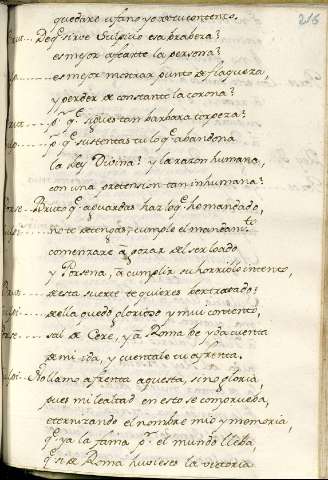 216
quedare ufano y de tu contento.
De q̃ sirve Sulpicio esa brabeza?
es mejor afearte la persona?
es mejor mostrar punto de flaqueza,
y perder de constante la corona?
p.r q̃ sigues tan barbara torpeza?
p.r q̃ sustentas tu lo q̃ abandona
la ley Divina? y la razon humana,
con una pretension tan inhumana?
Bruto q̃ aguardas haz lo q̃ he mandado,
no te detengas, cumple el mandam.to
comenzare â gozar del ser loado
y Porsena, â cumplir su horrible intento,
de esta suerte te quieres ber tratado?
de ella quedo glorioso y mui contento,
sal de Cere, y â Roma be y da cuenta
de mi ida, y cuentale tu afrenta.
No llamo afrenta aquesta, sino gloria,
pues mi lealtad en esto se comprueba,
eternizando el nombre mio y memoria,
q̃ ya la fama p.r el mundo lleba,
q̃ si de Roma huvieres la vitoria